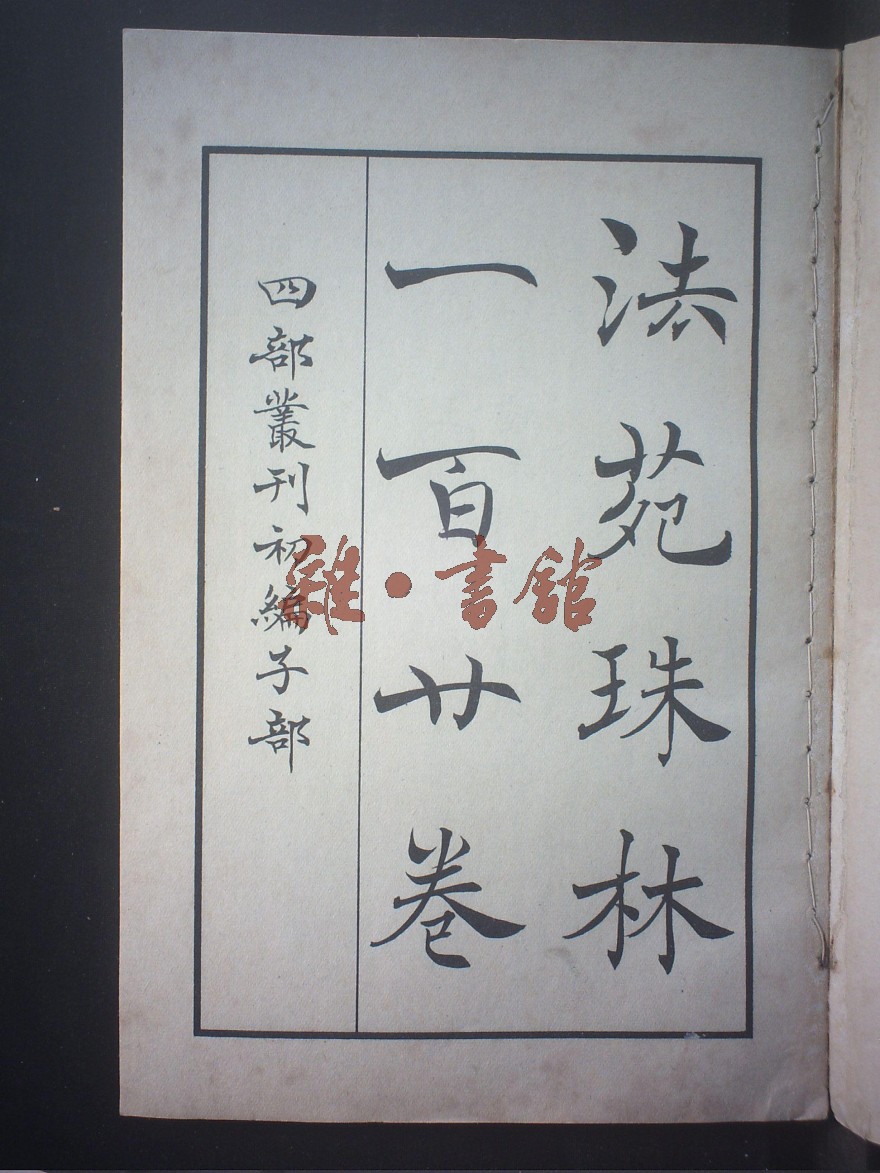 法苑珠林
一百廿卷
四部叢刊初編子部
雜·書館